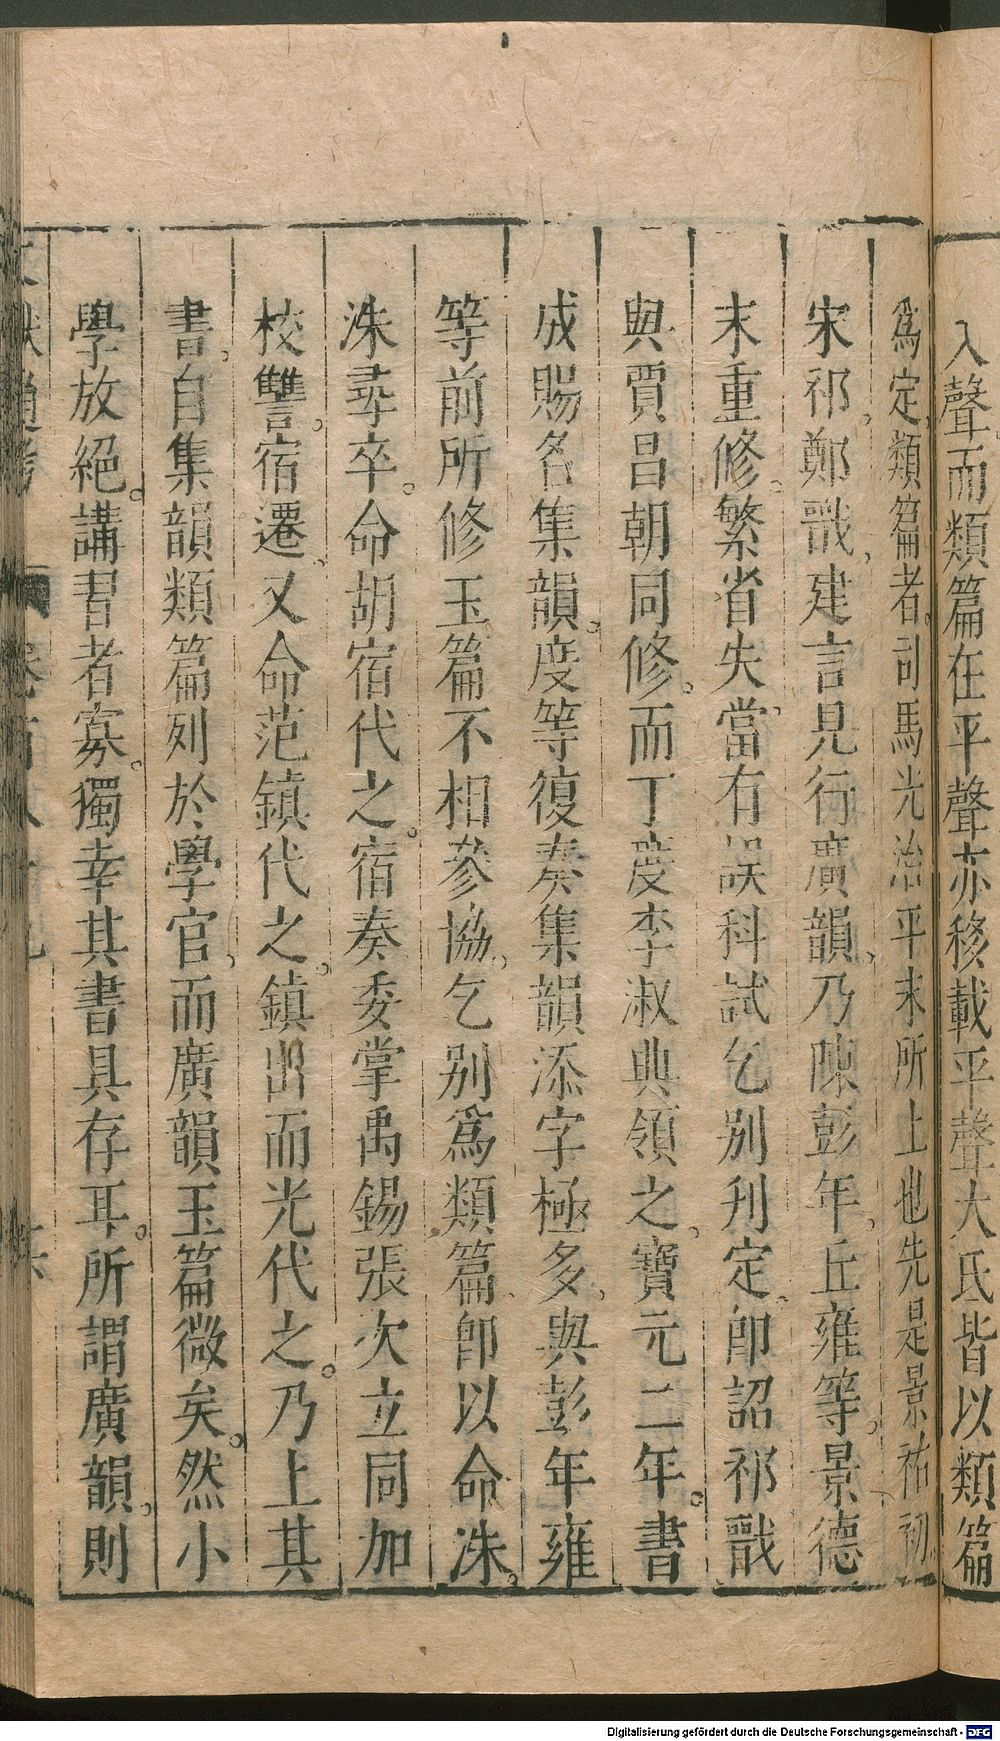 入聲而類篇在平聲亦移載平聲大氐皆以類篇
爲定類篇者司馬光治平末所上也先是景祐初
宋祁鄭戩建言見行廣韻乃陳彭年丘雍等景德
末重修繁省失當有誤科試乞別刊定卽詔祁戩
與賈昌朝同修而丁度李淑典領之寶元二年書
成賜名集韻度等復奏集韻添字極多與彭年雍
等前所修玉篇不相參協乞別爲類篇卽以命洙
洙尋卒命胡宿代之宿奏委掌禹錫張次立同加
校讐宿遷又命范鎮代之鎮出而光代之乃上其
書自集韻類篇列於學官而廣韻玉篇微矣然小
學放絕講習者寡獨幸其書具存耳所謂廣韻則
Digitalisierung gefördert durch die Deutsche Forschungsgemeinschaft - DFG